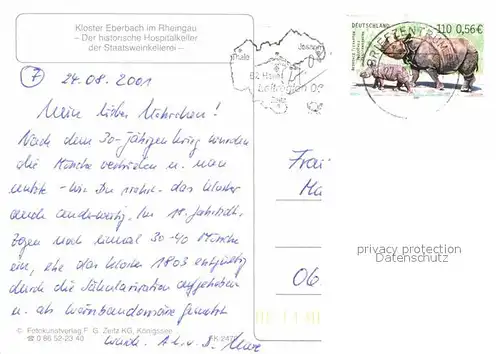 Kloster Eberbach im Rheingau
– Der historische Hospitalkeller
der Staatsweinkellerei –
7
24.08.2001
Mein lieber
Nach dem 30-jährigen Krieg wurden
die Mönche vertrieben u. man
nutzte - wie Du siehst - das Kloster
auch anderweitig. Im 18. Jahrhdt.
zogen noch einmal 30-40 Mönche
ein, ehe das Kloster 1803 endgültig
durch die Säkularisation aufgehoben
u. als genutzt
wurde.
© Fotokunstverlag F. G. Zeitz KG, Königssee
☎ 0 86 52-23 40
Thale
DEUTSCHLAND
110 0,56€
BRIEFZENTRUM
Frau
06
privacy protection
Datenschutz